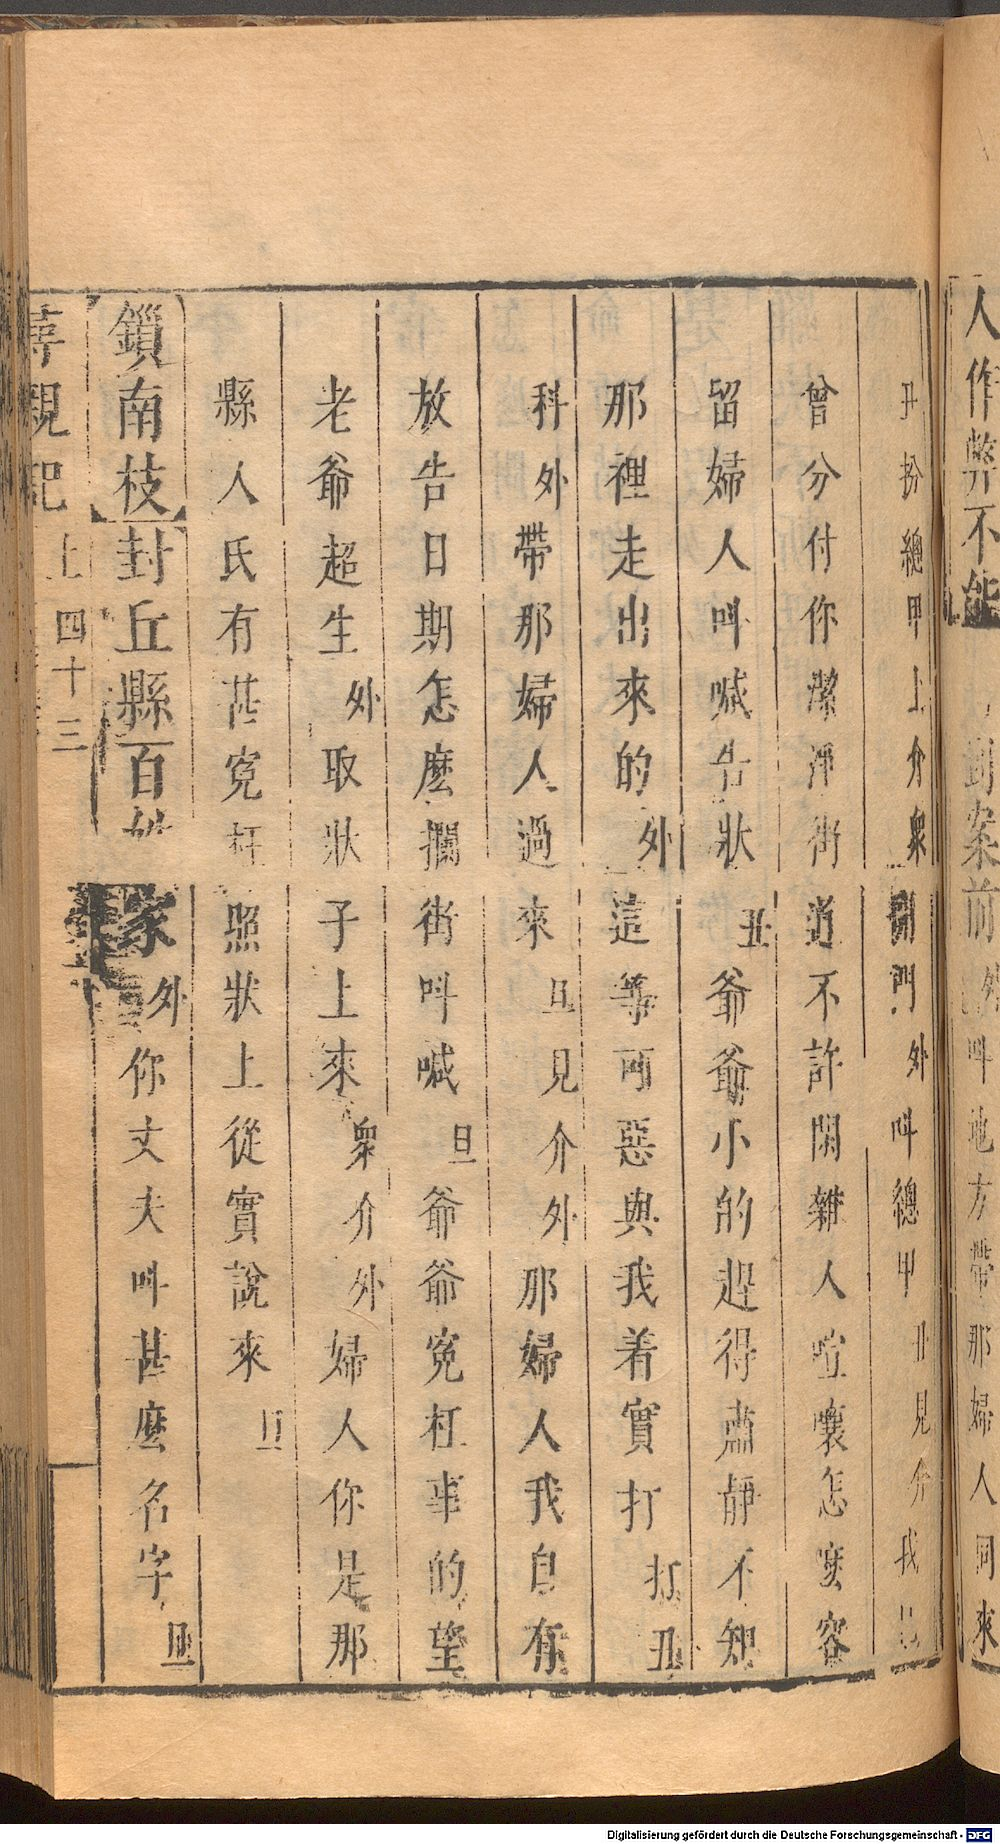 人作弊不能　　　到案前外叫地方帶那婦人同來
丑扮總甲上介衆開門外叫總甲丑見介我已
曾分付你潔淨街道不許閑雜人喧嚷怎麽容
留婦人叫喊告狀丑爺爺小的趕得肅静不知
那裡走出來的外這等可惡與我着實打打丑
科外帶那婦人過來旦見介外那婦人我自有
放告日期怎麽攔街叫喊旦爺爺寃枉事的望
老爺超生外取狀子上來衆介外婦人你是那
縣人氏有甚寃枉照狀上從實說來旦
鎖南枝封丘縣百姓家外你丈夫叫甚麽名字旦
尋親記上四十三
Digitalisierung gefördert durch die Deutsche Forschungsgemeinschaft - DFG